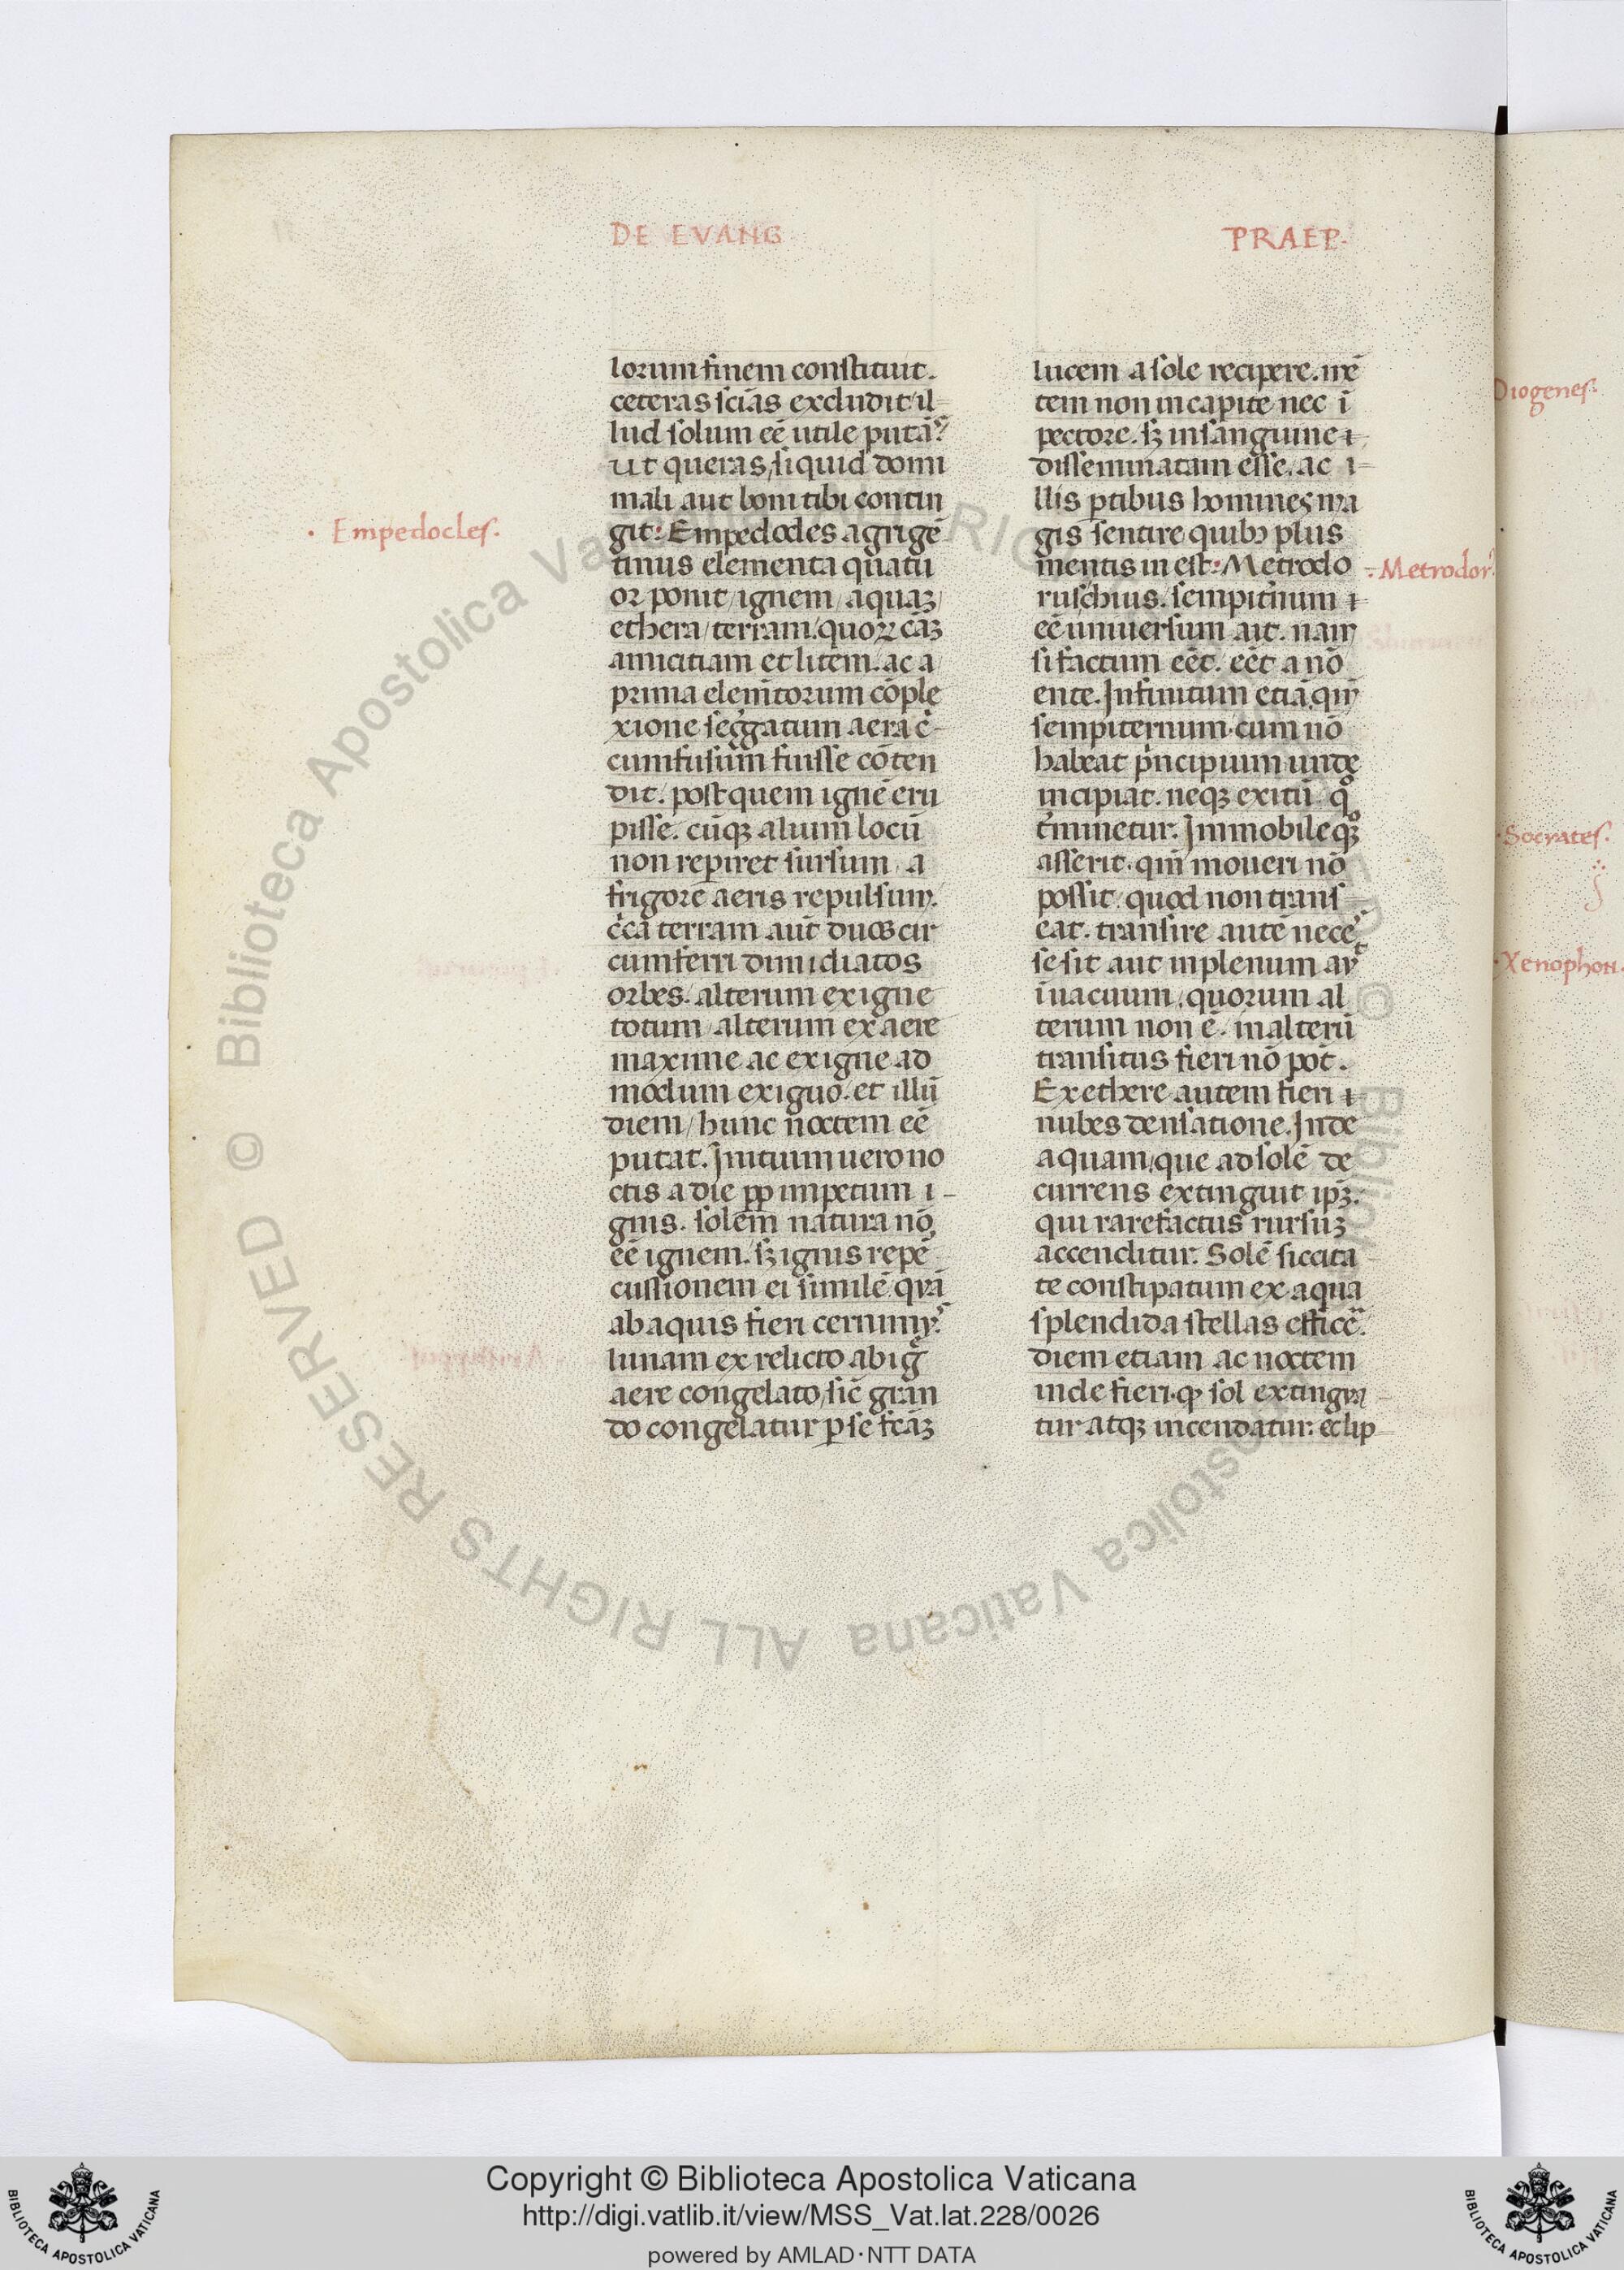 DE EVANG
PRAEP.
lorum finem constituit.
ceteras scīas excludit il-
lud solum eē utile putās
ut queras, siquid domi
mali aut boni tibi contin
git: Empedocles agrigē
tinus elementa quatu
or ponit, ignem, aquaꝫ,
ethera, terram. quoꝝ cāꝫ
amicitiam et litem. ac a
prima elemītorum cōple
xione
cumfusum fuisse cōten
dit. post quem ignē eru
pisse. cūqꝫ alium locū
non repiret sursum, a
frigore aeris repulsum.
terram aūt duos cir
cumferri dimidiatos
orbes. alterum ex igne
totum, alterum ex aere
maxime ac ex igne ad
modum exiguo. et illū
diem, hunc noctem eē
putat. Initium uero no
ctis a die ꝓp impetum i-
gnis. solem natura nō
eē ignem. sꝫ ignis repē
cussionem ei similē quā
ab aquis fieri cernimꝰ.
lunam ex relicto ab ig
aere congelato, sic gran
do congelatur ꝑ se fcāꝫ
lucem a sole recipere. mē
tem non in capite nec ī
pectore. sꝫ in sanguine
disseminatam esse. ac i-
llis ptibus homines ma
gis sentire quibꝫ plus
mentis in est: Metrodo
rus chius. sempitnum
eē uniuersum ait. nam
si factum eēt. eēt a nō
ente. Infinitum etiā qm̄
sempiternum. cum nō
habeat pncipium unde
incipiat. neqꝫ exitū quo
tminetur. Immobile qꝫ
asserit. qm̄ moueri nō
possit, quod non trans
eat. transire autē neces
se sit aut in plenum aut
ī uacuum, quorum al
terum non ē. in alterū
transitus fieri nō pōt.
Ex ethere autem fieri
nubes densatione. Inde
aquam, que ad solē de
currens extinguit ipꝫ.
qui rarefactus rursuꝫ
accenditur. Solē siccita
te constipatum ex aqua
splendida stellas efficē.
diem etiam ac noctem
inde fieri. ꝙ sol extingua
tur atqꝫ incendatur. eclip
· Empedocles.
· Metrodorꝰ
Diogenes.
· Socrates.
· Xenophon.
© Biblioteca Apostolica Vaticana ALL RIGHTS RESERVED
Copyright © Biblioteca Apostolica Vaticana
http://digi.vatlib.it/view/MSS_Vat.lat.228/0026
powered by AMLAD·NTT DATA
BIBLIOTECA APOSTOLICA VATICANA
BIBLIOTECA APOSTOLICA VATICANA